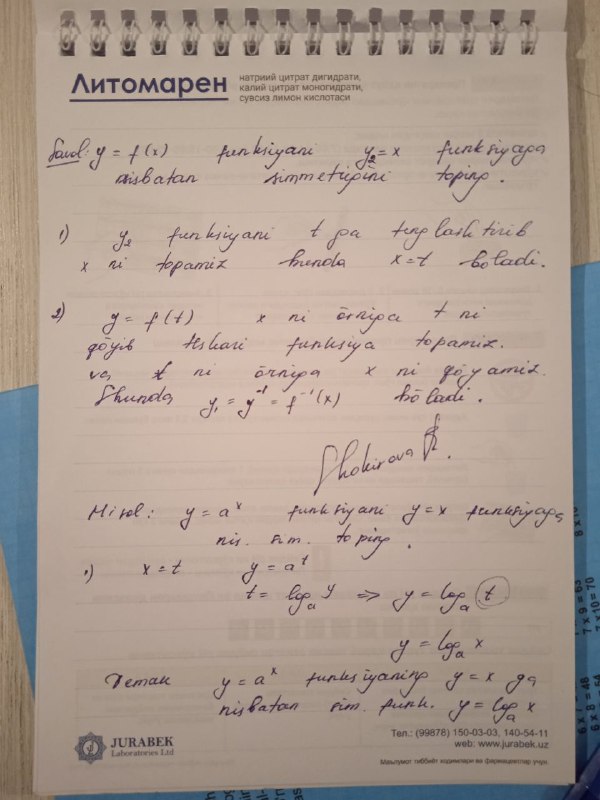 Литомарен
натрий цитрат дигидрати,
калий цитрат моногидрати,
сувсиз лимон кислотаси
Savol: y = f(x) funksiyani y₂=x funksiyaga
nisbatan simmetrigini toping.
1) y₂ funksiyani t ga tenglashtirib
x ni topamiz bunda x=t bo̅ladi.
2) y = f(t) x ni o̅rniga t ni
qo̅yib teskari funksiya topamiz.
va t ni o̅rniga x ni qo̅yamiz.
Shunda y₁ = y⁻¹ = f⁻¹(x) bo̅ladi.
Shokirova
Misol: y = aˣ funksiyani y=x funksiyaga
nis. sim. toping.
1) x=t y = aᵗ
t = logₐ y ⇒ y = logₐ t
y = logₐ x
Demak y = aˣ funksiyaning y=x ga
nisbatan sim. funk. y = logₐ x
JURABEK
Laboratories Ltd
Тел.: (99878) 150-03-03, 140-54-11
web: www.jurabek.uz
Маълумот тиббиёт ходимлари ва фармацевтлар учун
7 x 9 = 63
7 x 10 = 70
6 x 8 = 48